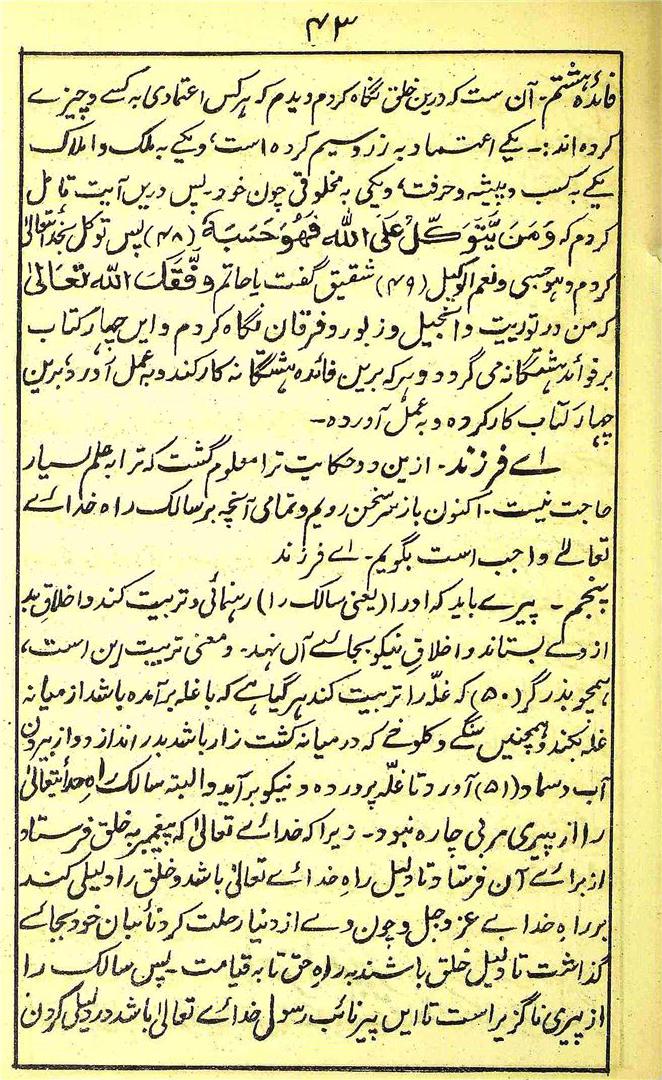 ۴۳
فائدۂ ہشتم۔ آن ست کہ درین خلق نگاہ کردم و دیدم کہ ہر کس اعتمادی بہ کسے و چیزے
کردہ اند:۔ یکے اعتماد بہ زر و سیم کردہ است، و یکے بہ ملک و املاک
یکے بہ کسب و پیشہ و حرفت، و یکی بہ مخلوقی چون خود۔ پس دریں آیت تامل
کردم کہ وَمَنْ یَّتَوَکَّلْ عَلَی اللّٰہ فَھُوَ حَسْبُہٗ (۴۸) پس توکل بخدا تعالیٰ
کردم و ھو حسبی و نعم الوکیل (۴۹) شقیق گفت یا حاتم وفَّقَکَ اللّٰہ تَعَالٰی
کہ من در توریت و انجیل و زبور و فرقان نگاہ کردم و ایں چہار کتاب
بر فوائد ہشتگانہ می گردد و ہر کہ برین فائدہ ہشتگانہ کار کند و بہ عمل آورد، برین
چہار کتاب کار کردہ و بہ عمل آوردہ۔
اے فرزند۔ ازین دو حکایت ترا معلوم گشت کہ ترا بہ علم بسیار
حاجت نیست۔ اکنون باز سر سخن رویم و تمامی آنچہ بر سالک راہ خدائے
تعالےٰ واجب است بگویم۔ اے فرزند
پنجم۔ پیرے باید کہ او را (یعنی سالک را) رہنمائی و تربیت کند و اخلاقِ بد
از وے بستاند و اخلاقِ نیکو بجائے آں نہد۔ و معنی تربیت این است،
ہمچو بذرگر (۵۰) کہ غلّہ را تربیت کند ہر گیاہے کہ با غلہ بر آمدہ باشد از میانہ
غلہ بکند و ہمچنیں سنگے و کلوخے کہ در میانہ کشت زار باشد بدر اندازد و از بیرون
آب و سماد (۵۱) آورد تا غلّہ پروردہ و نیکو بر آید و البتہ سالک راہِ خدائیتعالیٰ
را از پیری مربی چارہ نبود۔ زیرا کہ خدائے تعالیٰ کہ پیغمبر بہ خلق فرستاد
از برائے آن فرستاد تا دلیل راہِ خدائے تعالیٰ باشد و خلق را دلیلی کند
بر راہِ خدا بے عز و جل و چون وے از دنیا رحلت کرد نائبان خود بجائے
گذاشت تا دلیل خلق باشند بہ راہِ حق تا بہ قیامت۔ پس سالک را
از پیری ناگزیر است تا ایں پیر نائب رسول خدائے تعالیٰ باشد در دلیلی کردن